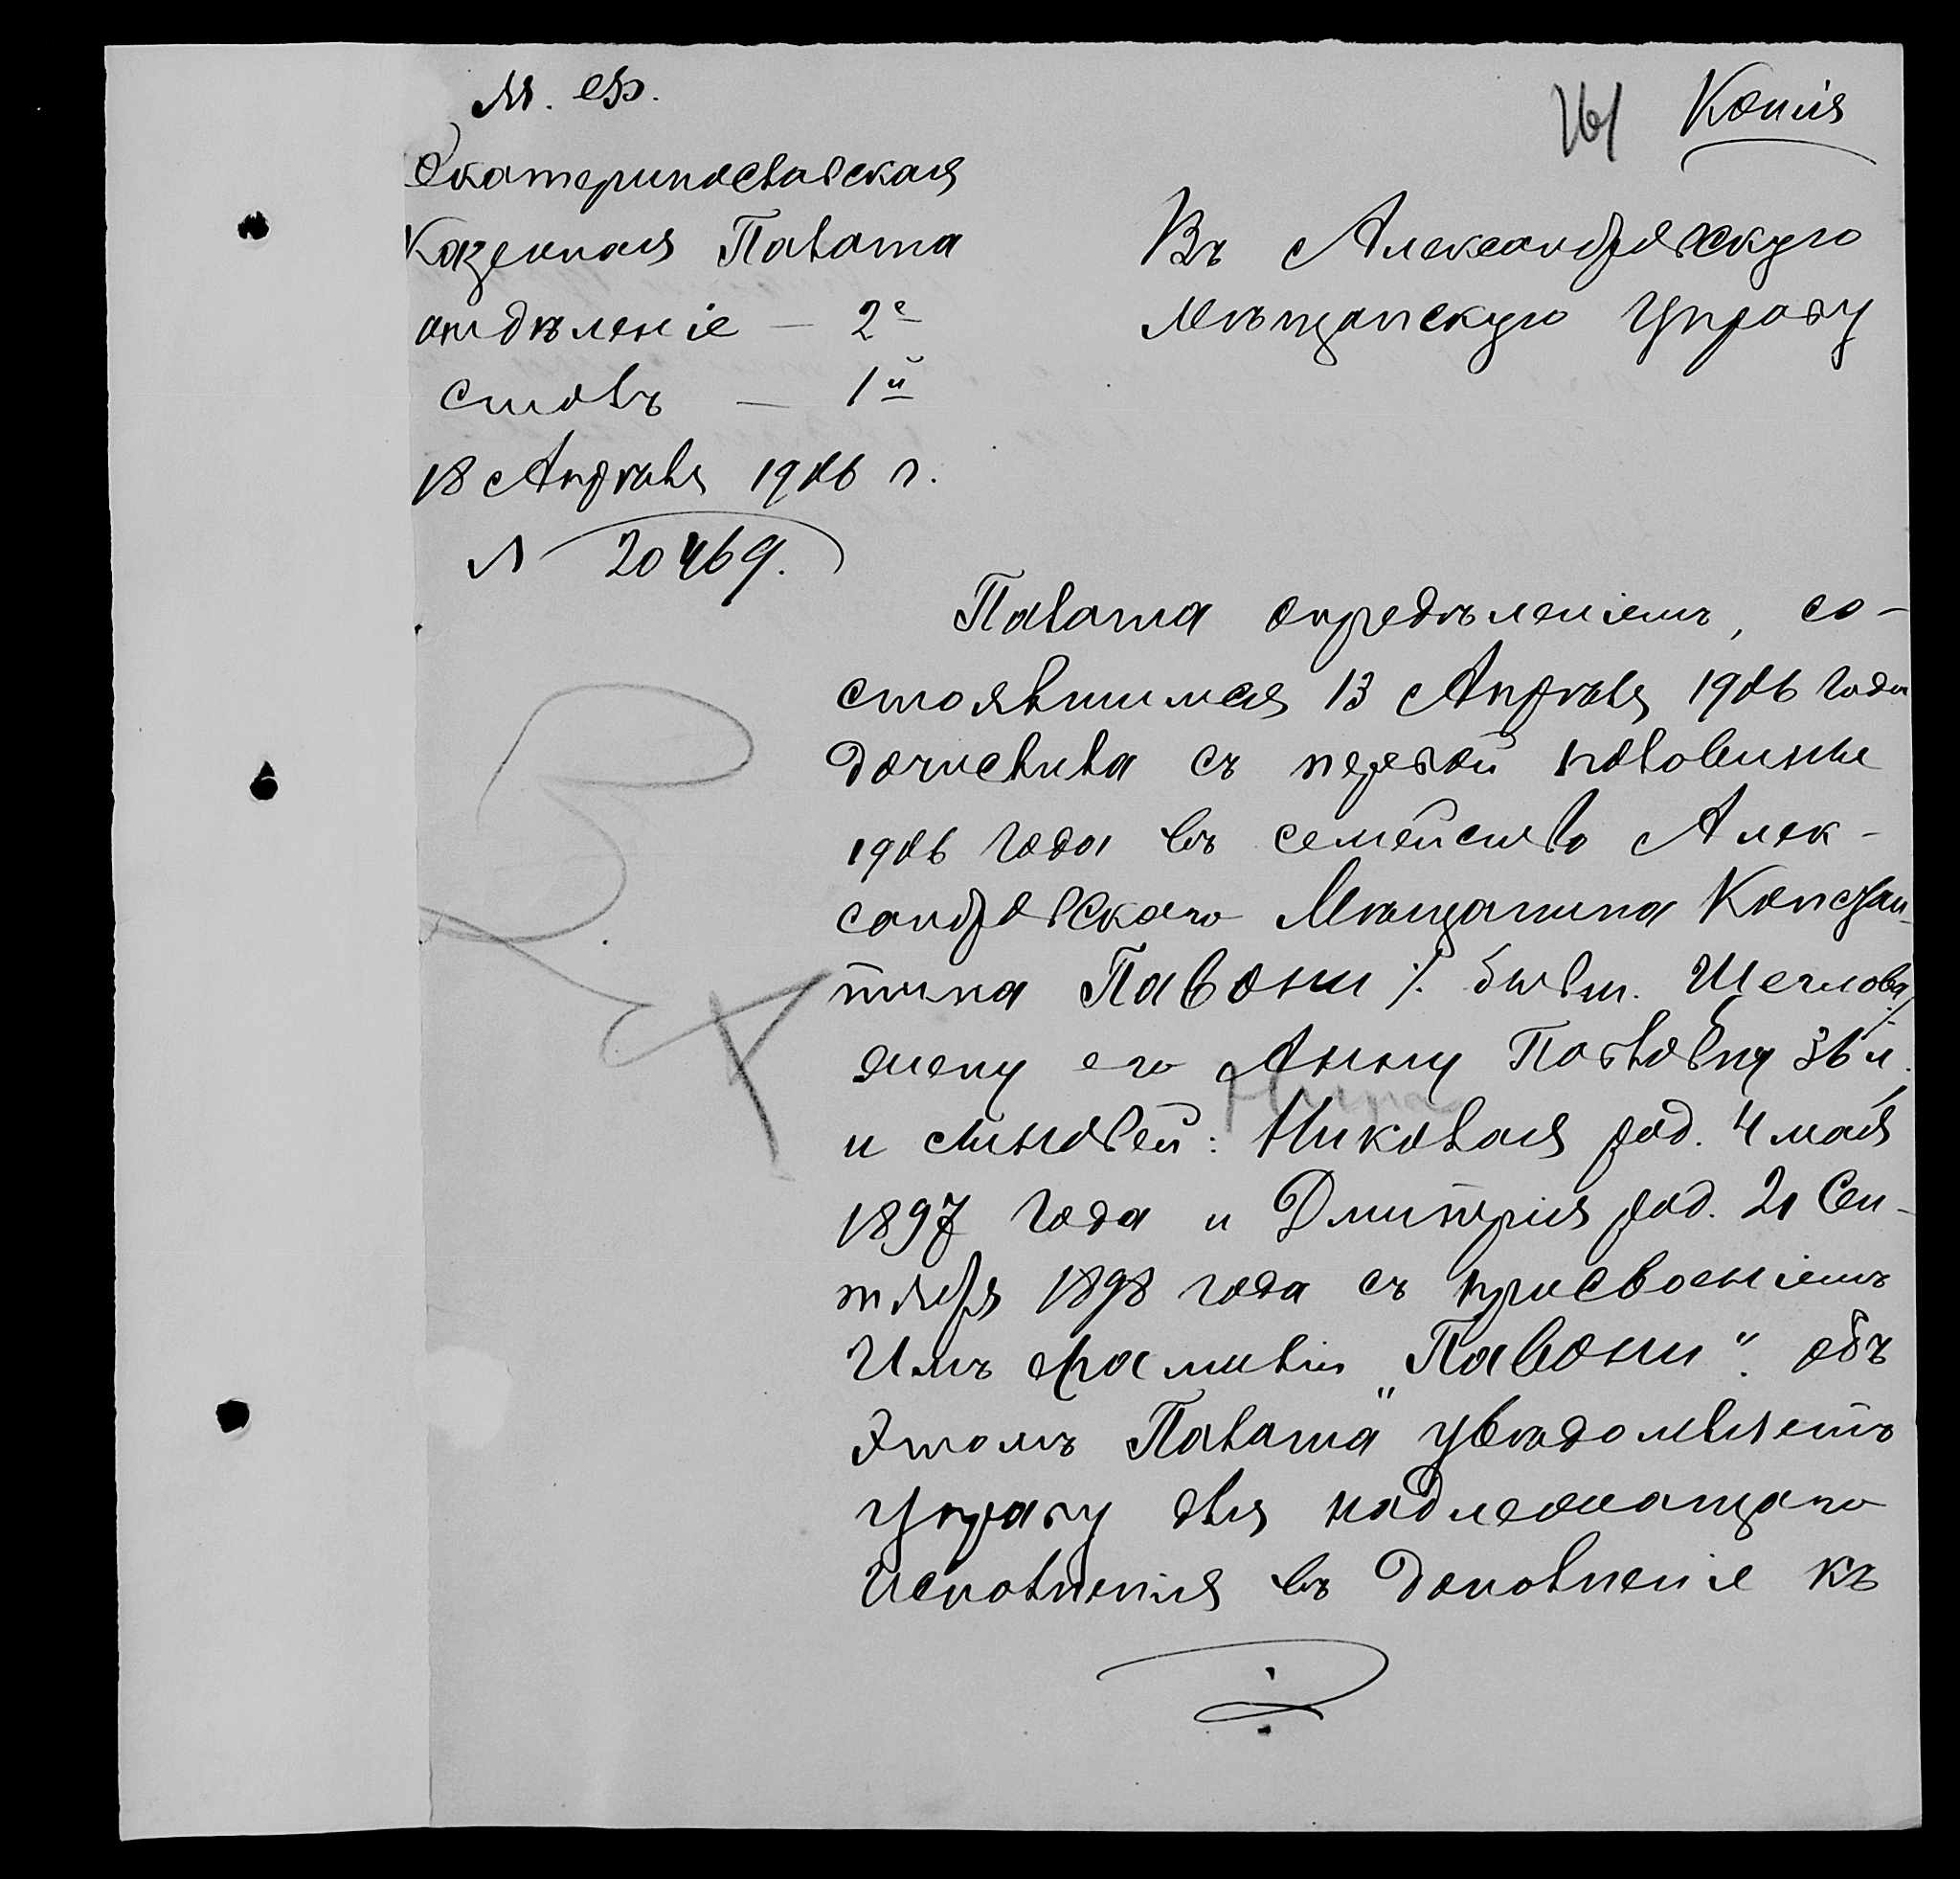 М. Ф.
161 Копія
Екатеринославская
Казенная Палата
отдѣленіе — 2е
столъ — 1й
18 Апрѣля 1906 г.
№ 20469.
Въ Александровскую
Мѣщанскую Управу
Палата опредѣленіемъ, со-
стоявшимся 13 Апрѣля 1906 года
дочислила съ первой половины
1906 года въ семейство Алек-
сандровскаго Мѣщанина Констан-
тина Павони /. бывш. Щеглова./
жену его Анну Павловну 36 л.
и сыновей: Николая род. 4 мая
1897 года и Дмитрія род. 21 Сен-
тября 1898 года съ присвоеніемъ
имъ фамиліи „Павони“. Объ
этомъ Палата увѣдомляетъ
Управу для надлежащаго
исполненія въ дополненіе къ